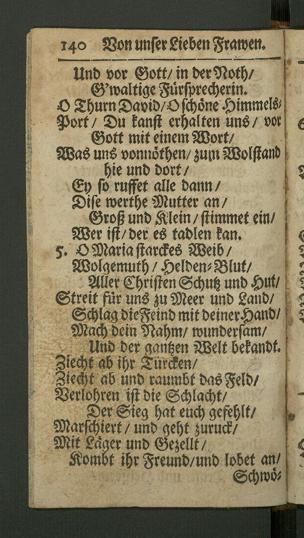 140 Von unser Lieben Frawen.
Und vor Gott/ in der Noth/
G'waltige Fürsprecherin.
O Thurn David/ O schöne Himmels-
Port/ Du kanst erhalten uns/ vor
Gott mit einem Wort/
Was uns vonnöthen/ zum Wolstand
hie und dort/
Ey so ruffet alle dann/
Dise werthe Mutter an/
Groß und Klein/ stimmet ein/
Wer ist/ der es tadlen kan.
5. O Maria starckes Weib/
Wolgemuth/ Helden-Blut/
Aller Christen Schutz und Hut/
Streit für uns zu Meer und Land/
Schlag die Feind mit deiner Hand/
Mach dein Nahm/ wundersam/
Und der gantzen Welt bekandt.
Ziecht ab ihr Türcken/
Ziecht ab und raumbt das Feld/
Verlohren ist die Schlacht/
Der Sieg hat euch gefehlt/
Marschiert/ und geht zuruck/
Mit Läger und Gezellt/
Kombt ihr Freund/und lobet an/
Schwö-